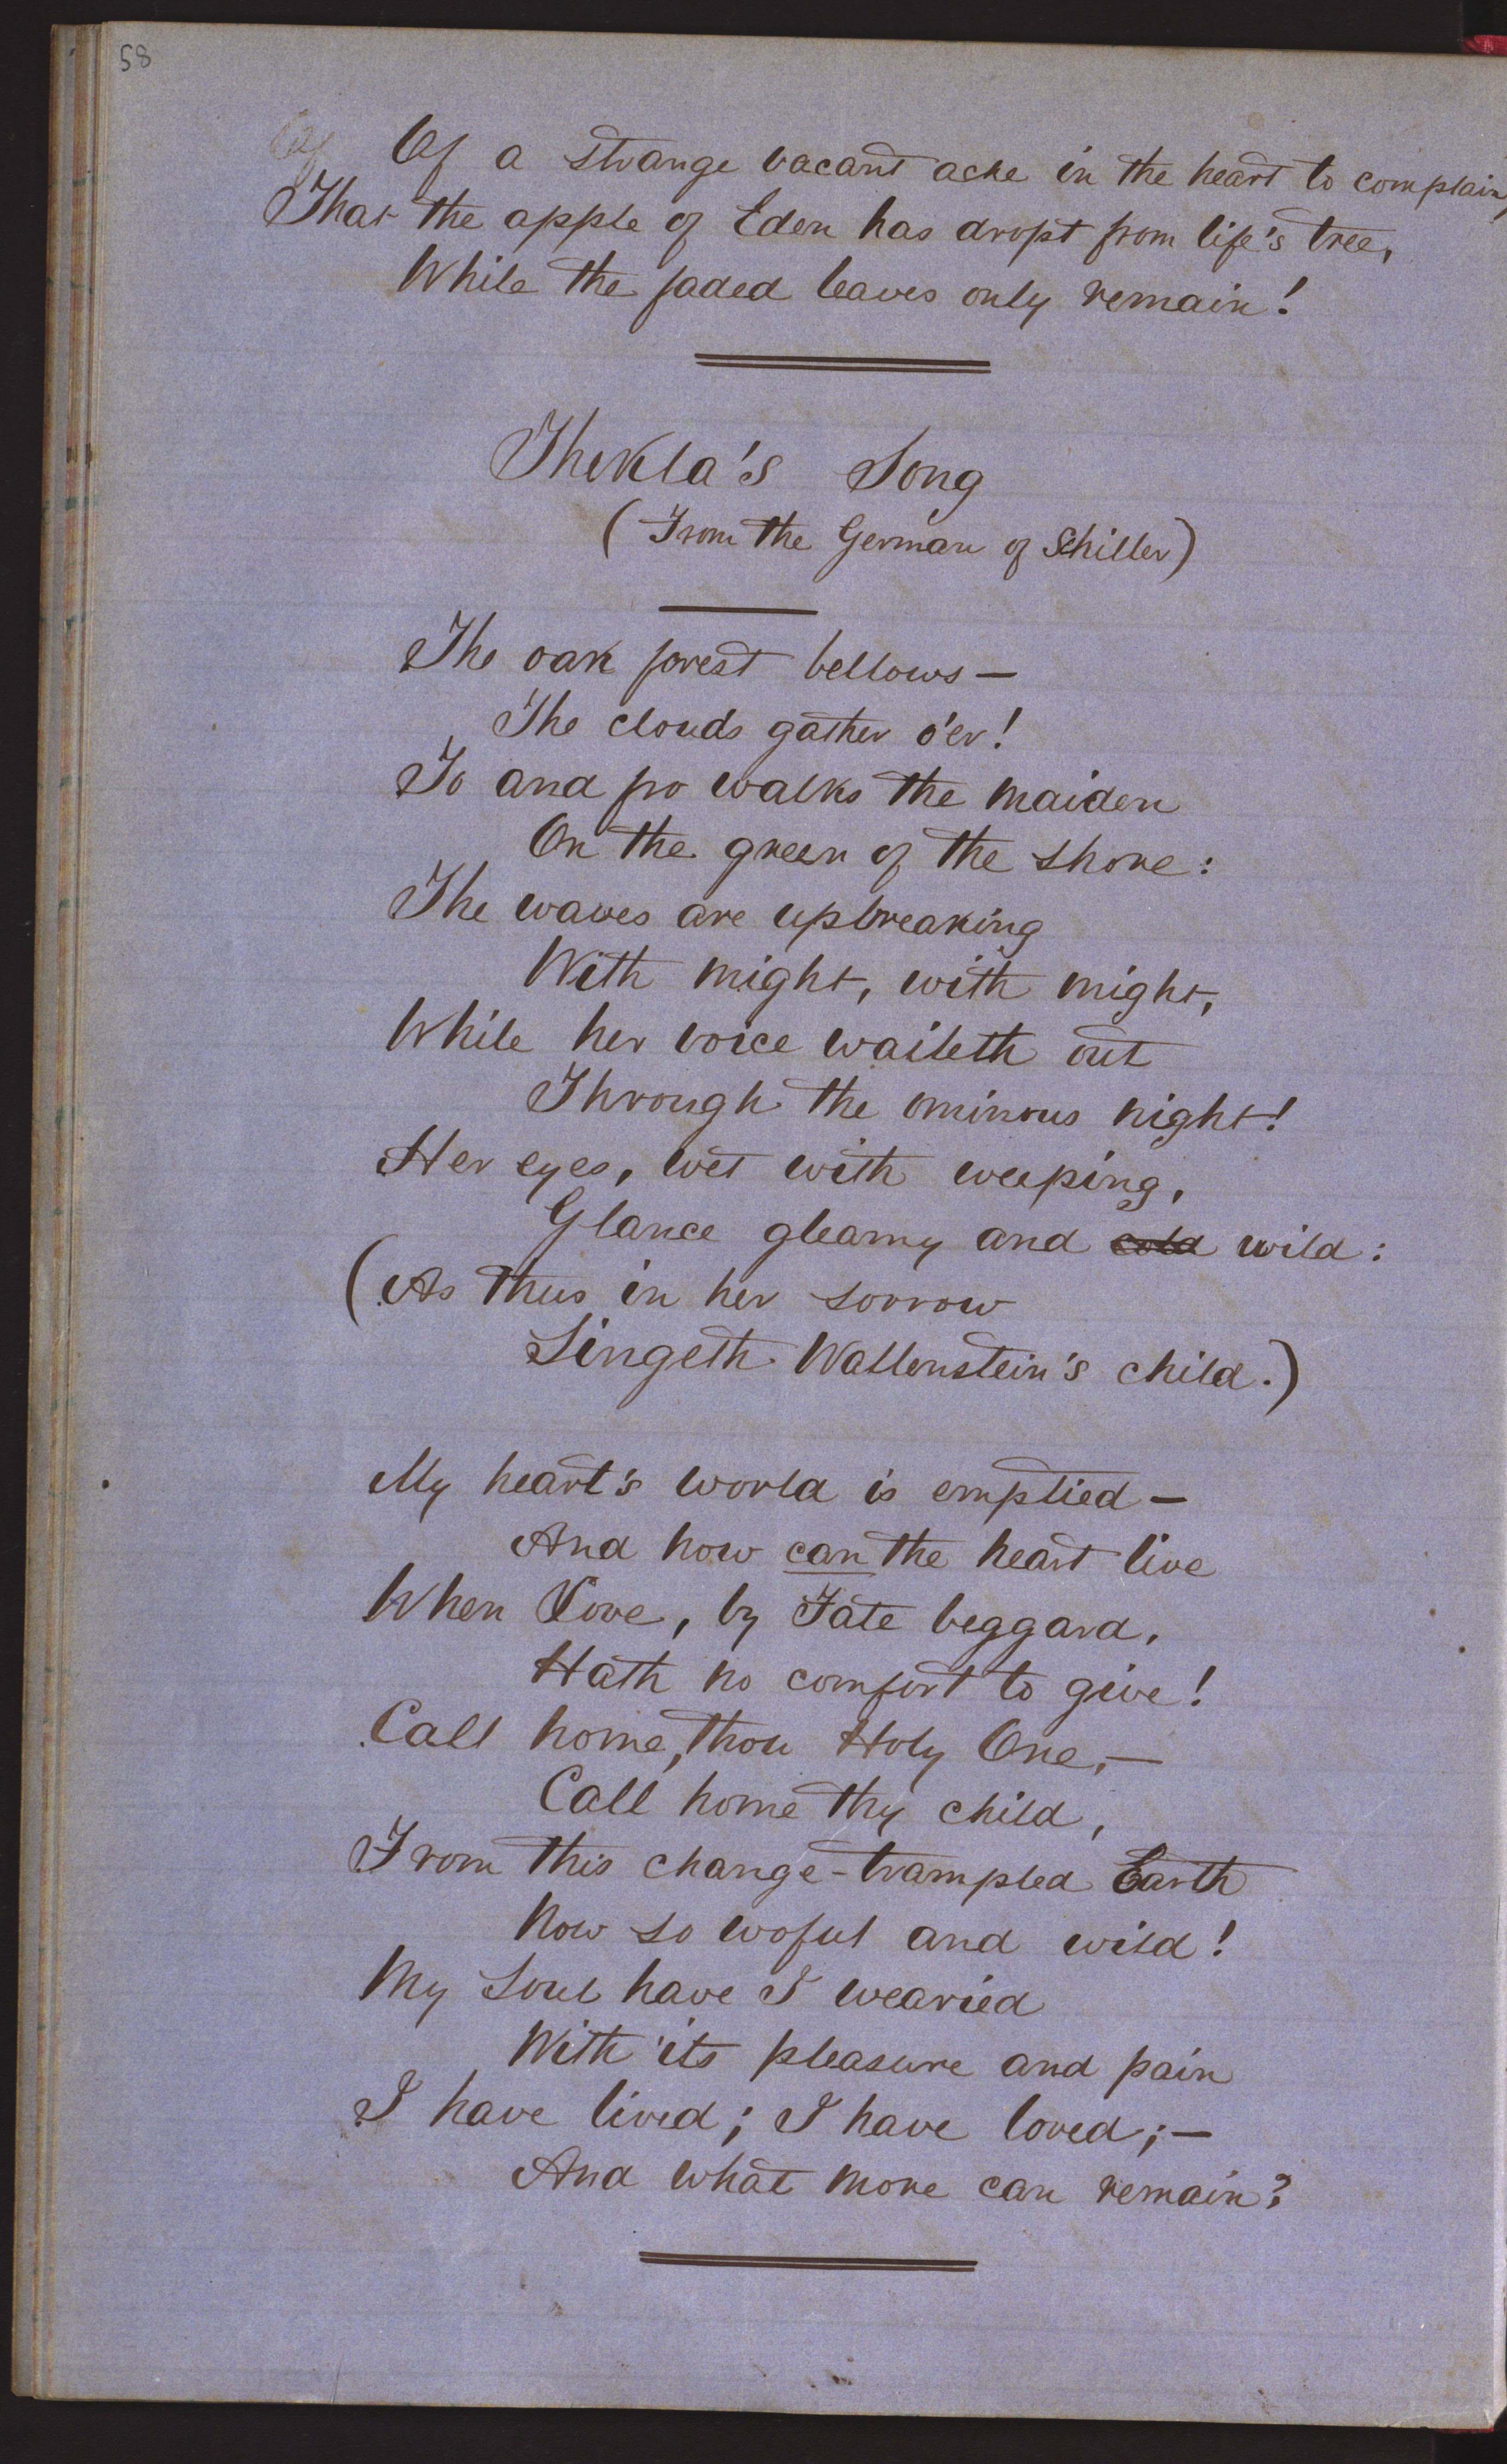 58
Of Of a strange vacant ache in the heart to complain,
That the apple of Eden has dropt from life's tree,
While the faded leaves only remain!
Thekla's Song
(From the German of Schiller)
The oak forest bellows —
The clouds gather o'er!
To and fro walks the maiden
On the green of the shore:
The waves are upbreaking
With might, with might,
While her voice waileth out
Through the ominous night!
Her eyes, wet with weeping,
Glance gleamy and cold wild:
(As thus in her sorrow
Singeth Wallenstein's child.)
My heart's world is emptied —
And how can the heart live
When Love, by Fate beggard,
Hath no comfort to give!
Call home, thou Holy One, —
Call home thy child,
From this change-trampled Earth
Now so woful and wild!
My Soul have I wearied
With its pleasure and pain
I have lived; I have loved; —
And what more can remain?